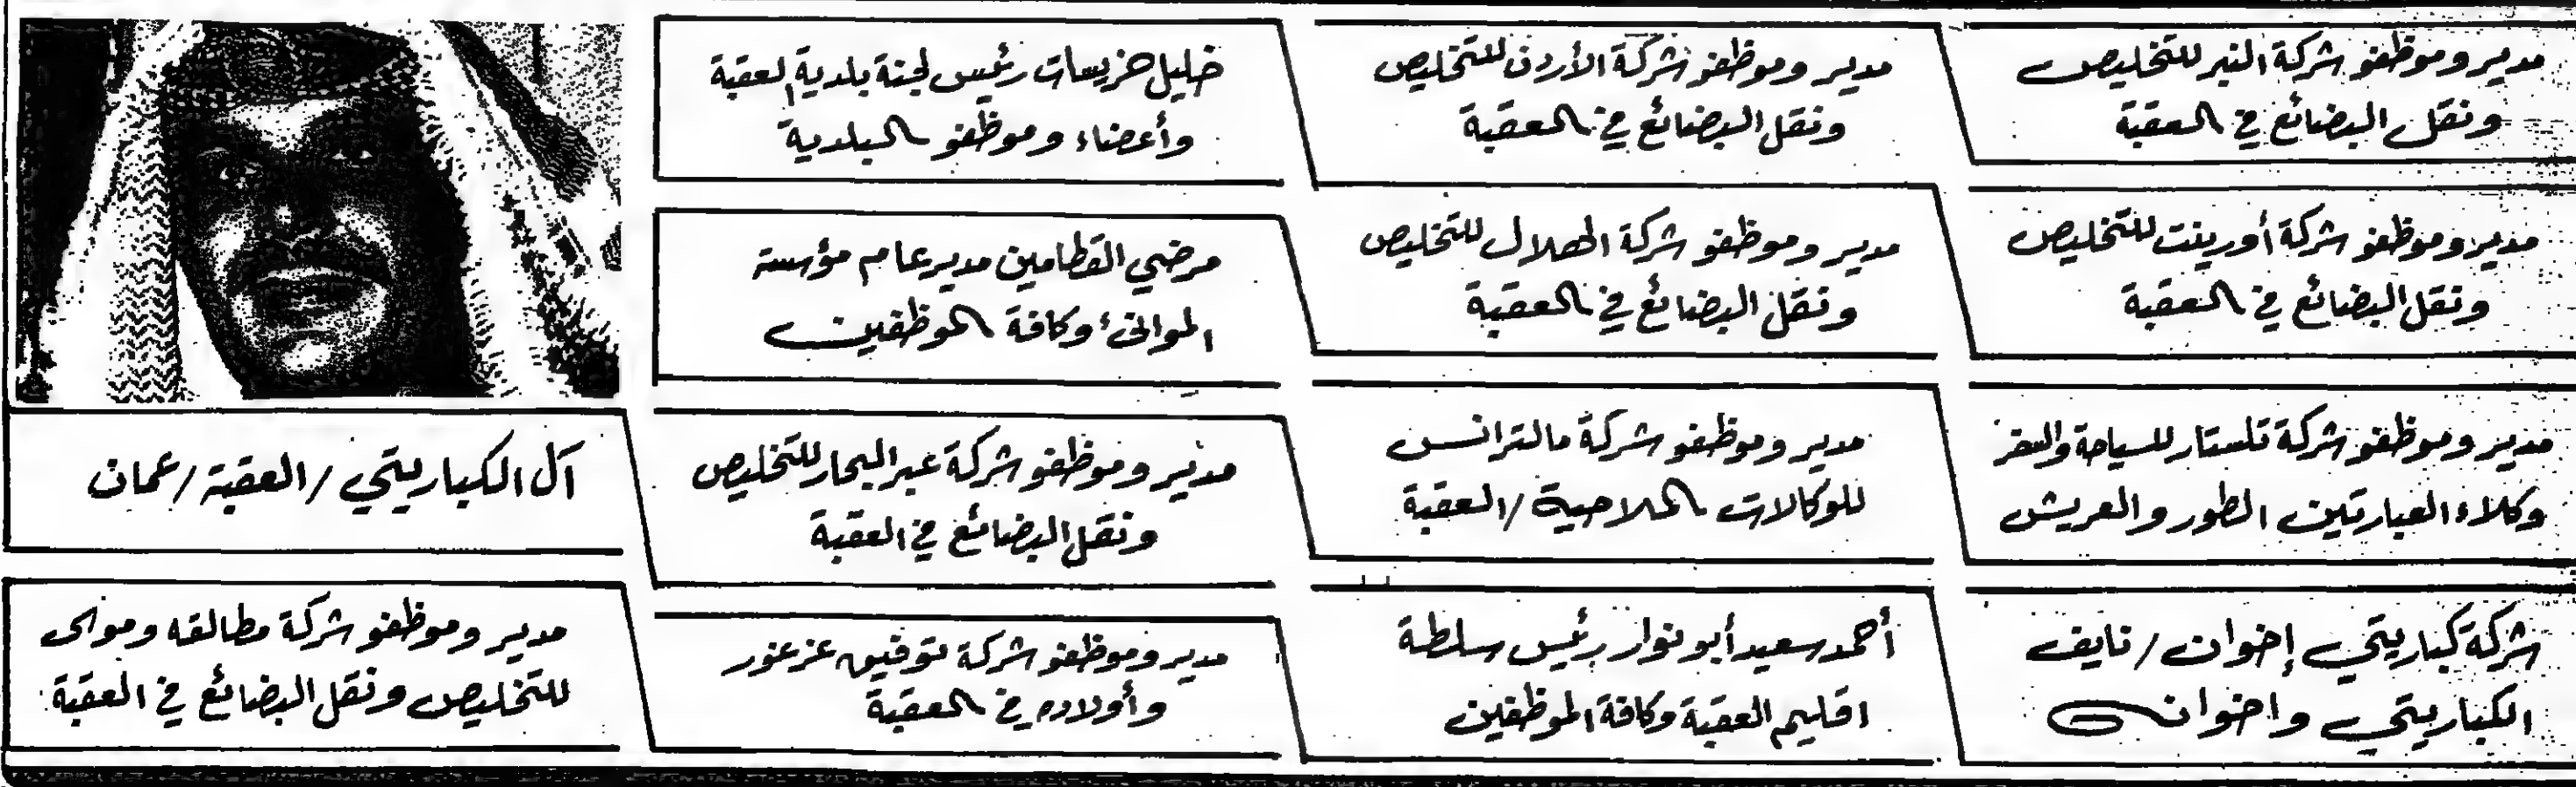 مدير وموظفو شركة النبر للتخليص
ونقل البضائع في العقبة
مدير وموظفو شركة أورينت للتخليص
ونقل البضائع في العقبة
مدير وموظفو شركة تلستار للسياحة والسفر
وكلاء العبارتين الطور والعريش
شركة كباريتي إخوان / نايف
الكباريتي واخوانه
مدير وموظفو شركة الأردن للتخليص
ونقل البضائع في العقبة
مدير وموظفو شركة الهلال للتخليص
ونقل البضائع في العقبة
مدير وموظفو شركة مالترانس
للوكالات الملاحية / العقبة
أحمد سعيد أبو نوار رئيس سلطة
اقليم العقبة وكافة الموظفين
خليل هريسات رئيس لجنة بلدية العقبة
وأعضاء وموظفو البلدية
مرضي القطامين مدير عام مؤسسة
الموانئ وكافة الموظفين
مدير وموظفو شركة عبر البحار للتخليص
ونقل البضائع في العقبة
مدير وموظفو شركة توفيق عزعزور
وأولاده في العقبة
آل الكباريتي / العقبة / عمان
مدير وموظفو شركة مطالقه وموالى
للتخليص ونقل البضائع في العقبة